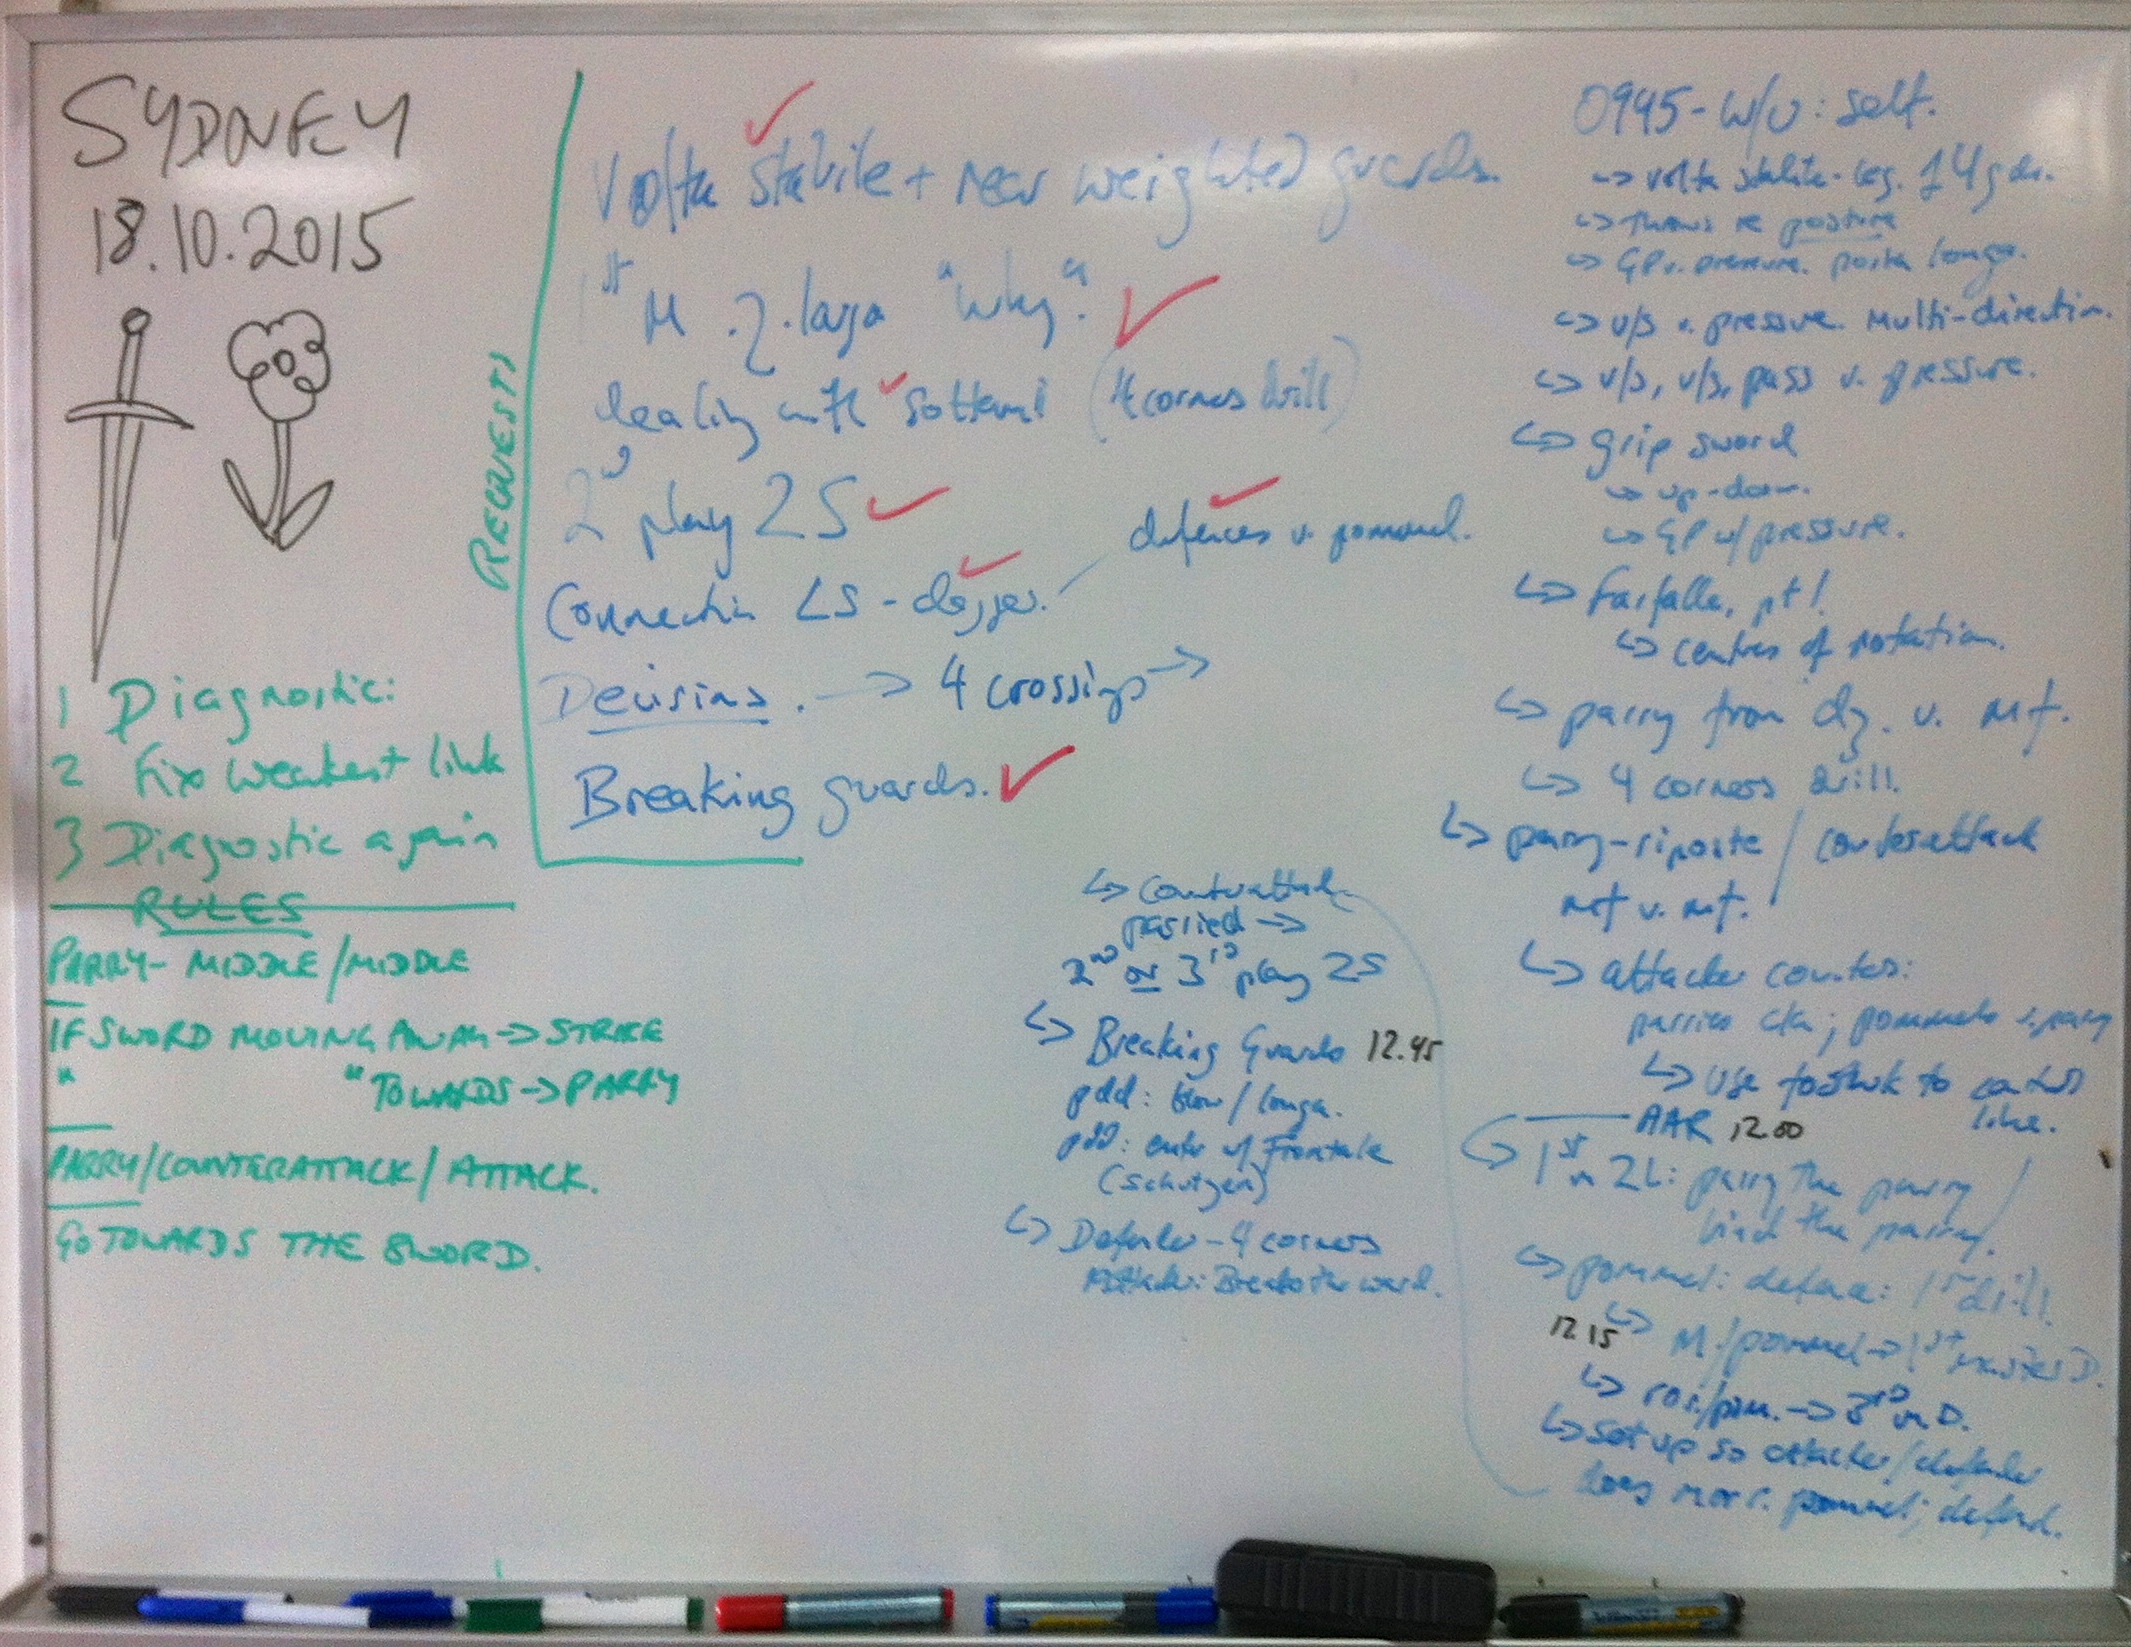 SYDNEY
18.10.2015
1 Diagnostic:
2 Fix weakest link
3 Diagnostic again
RULES
PARRY- MIDDLE/MIDDLE
IF SWORD MOVING AWAY -> STRIKE
" " TOWARDS -> PARRY
PARRY/COUNTERATTACK/ATTACK.
GO TOWARDS THE SWORD.
REQUESTS
Volta Stabile + rear weighted guards.
1st M. Z. largo "why".
dealing with sottani (4 corners drill)
2D play ZS
defences v. pommel.
Connection LS - dagger.
Decisions. -> 4 crossings ->
Breaking guards.
↳ Counterattack
parried ->
2nd or 3rd play ZS
↳ Breaking Guards 12.45
pdd: blow/longa.
pdd: enter w/ Frontale
(schutzen)
↳ Defender - 4 corners
Attacker: Breaks the ward.
0945 - W/U: self.
↳ volta stabile - leg. 14 gds.
↳ re posture
↳ GP v. pressure. posta longa.
↳ v/s v. pressure. Multi-direction.
↳ v/s, v/s, pass v. pressure.
↳ grip sword
↳ up-down.
↳ GP w/ pressure.
↳ Farfalla, pt 1.
↳ centres of rotation.
↳ parry from dz. v. mf.
↳ 4 corners drill.
↳ parry-riposte / counterattack
mf v. mf.
↳ attacker counters:
parries ctr; pommels v. parry
↳ use footwork to control
line.
AAR 12.00
↳ 1st m ZL: parry the parry /
bind the parry.
↳ pommel: defence: 1st drill.
12 15 ↳ M./pommel -> 1st master D.
↳ rov./pom. -> 3rd m. D.
↳ Set up so attacker/defender
does man r. pommel; defend.